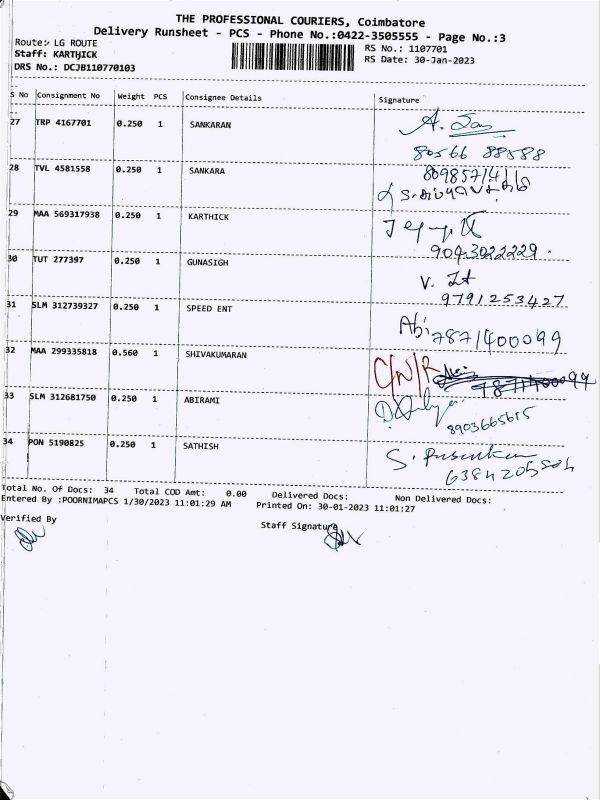 THE PROFESSIONAL COURIERS, Coimbatore
Delivery Runsheet - PCS - Phone No.:0422-3505555 - Page No.:3
Route:- LG ROUTE
RS No.: 1107701
Staff: KARTHICK
RS Date: 30-Jan-2023
DRS No.: DCJB110770103
S No Consignment No Weight PCS Consignee Details Signature
27 TRP 4167701 0.250 1 SANKARAN
80566 88588
28 TVL 4581558 0.250 1 SANKARA
29 MAA 569317938 0.250 1 KARTHICK
9043022229.
30 TUT 277397 0.250 1 GUNASIGH
9791253427
31 SLM 312739327 0.250 1 SPEED ENT
Abi 7871400099
32 MAA 299335818 0.560 1 SHIVAKUMARAN
C/N/R
33 SLM 312681750 0.250 1 ABIRAMI
8903665615
34 PON 5190825 0.250 1 SATHISH
Total No. Of Docs: 34 Total COD Amt: 0.00 Delivered Docs: Non Delivered Docs:
Entered By :POORNIMAPCS 1/30/2023 11:01:29 AM Printed On: 30-01-2023 11:01:27
Verified By Staff Signature